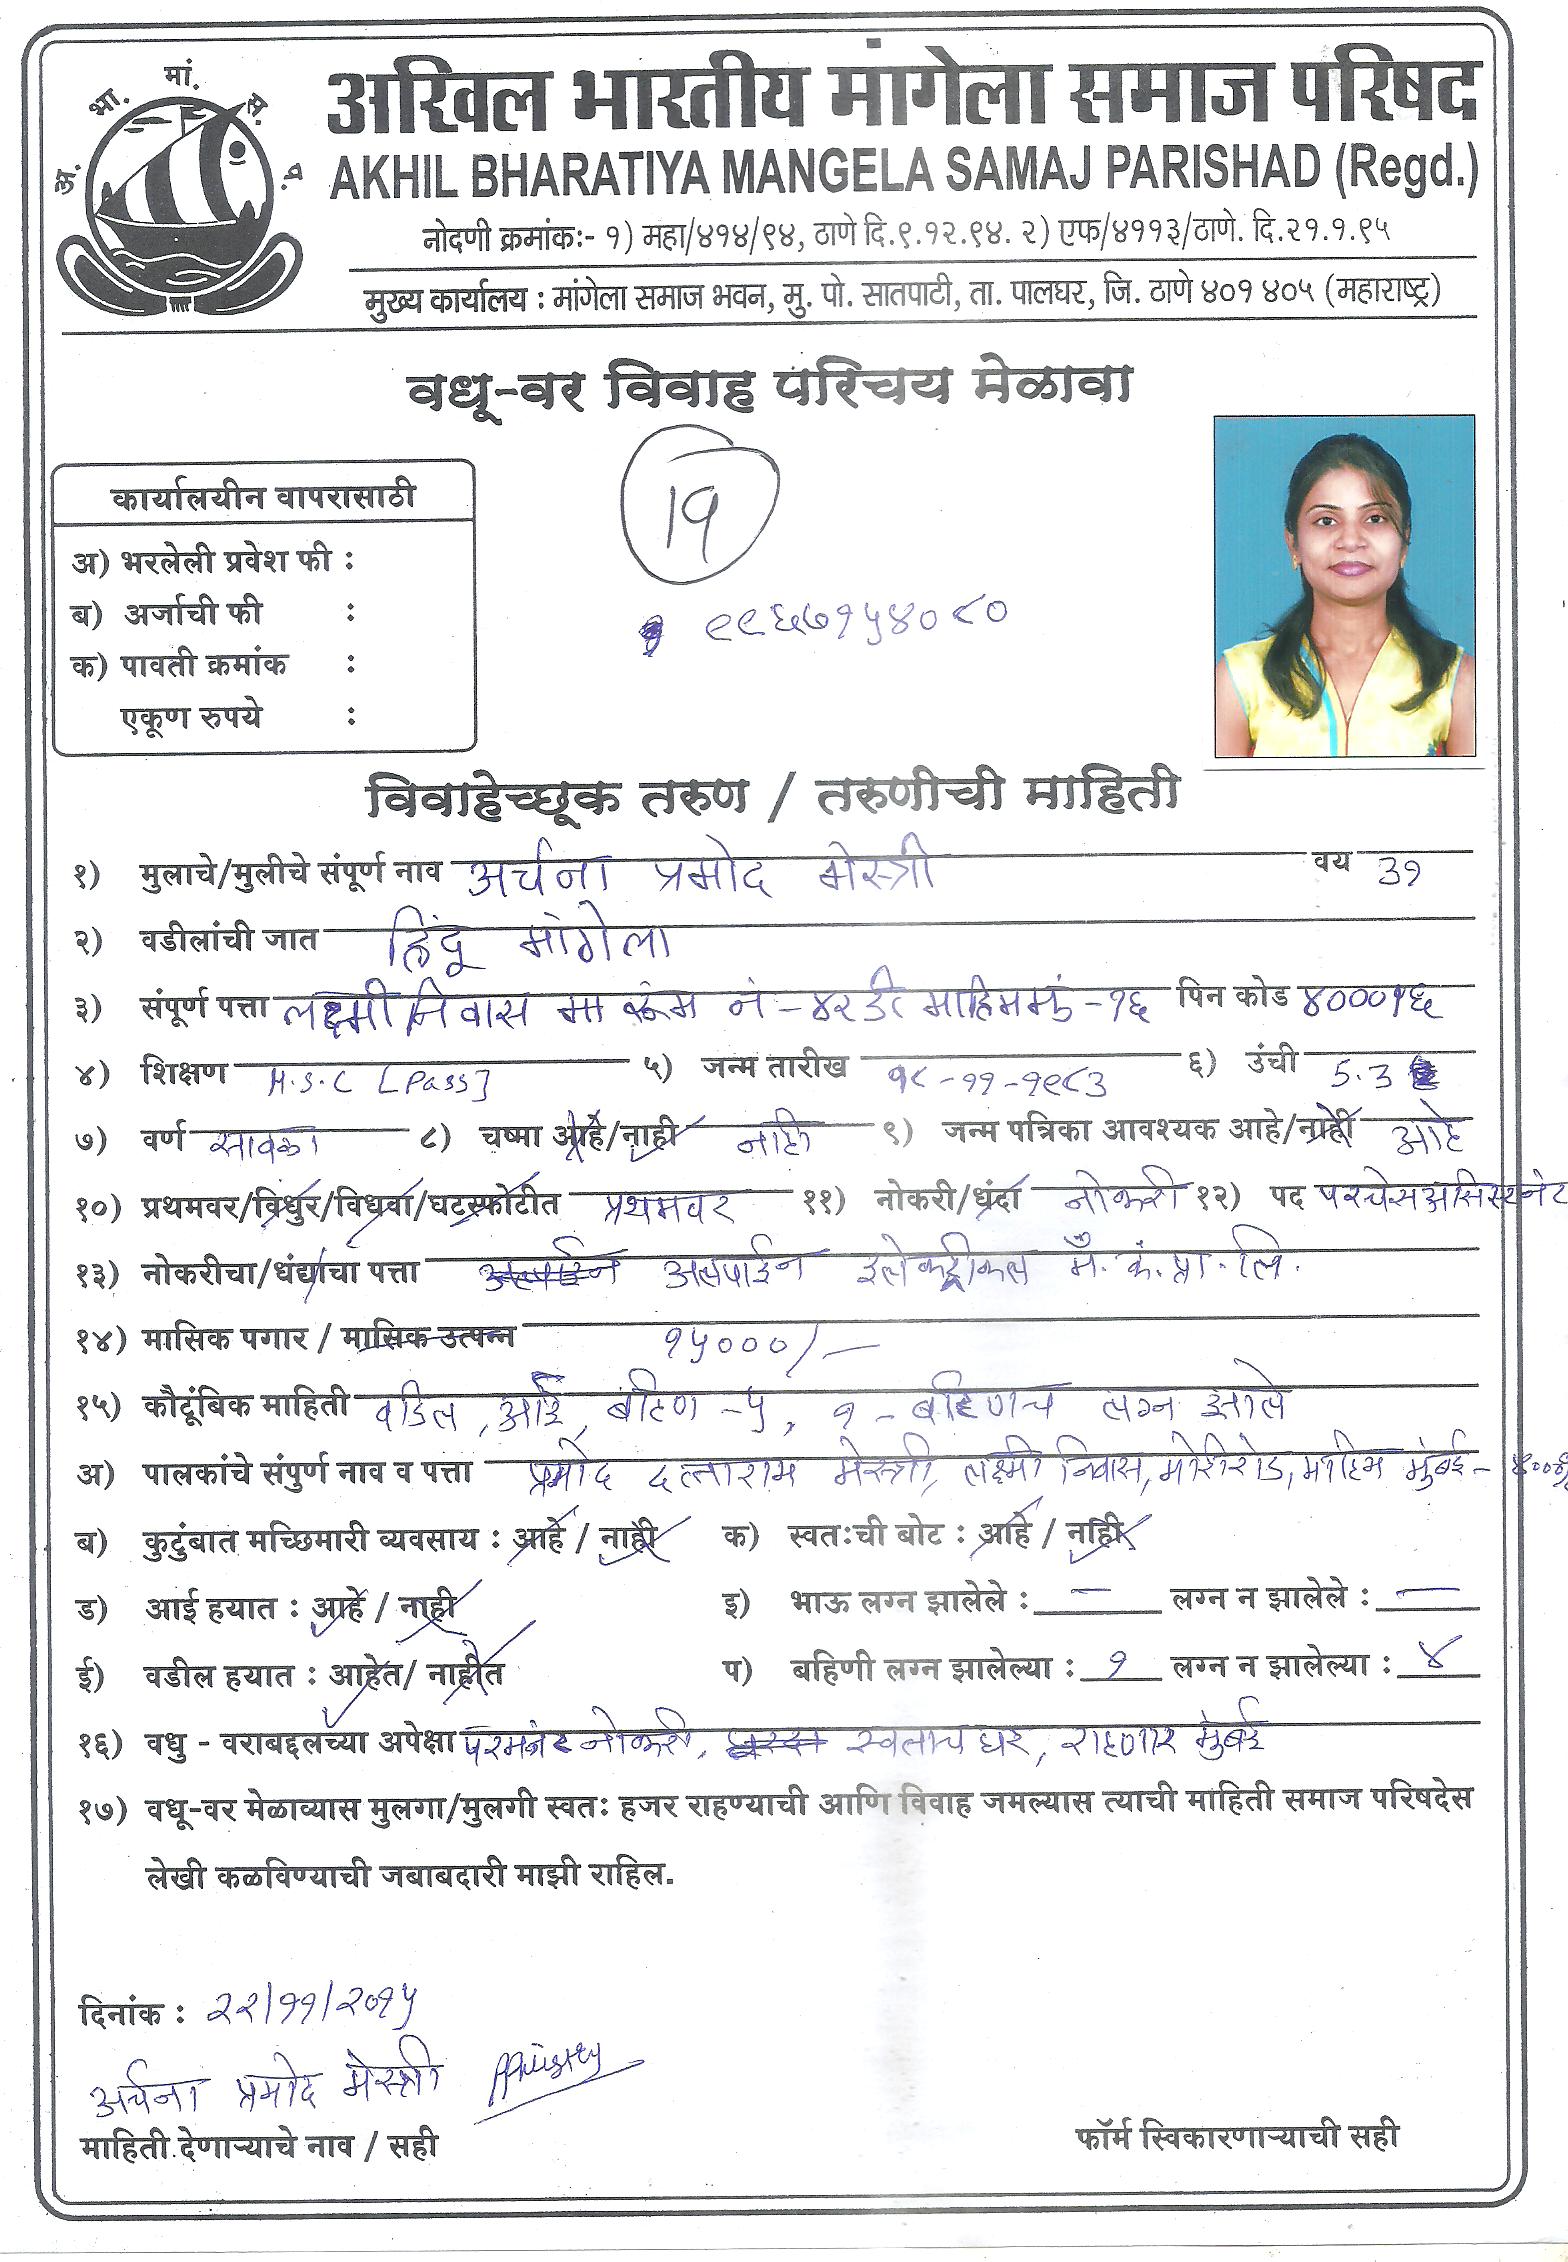 अ. भा. मां. स. प.
अखिल भारतीय मांगेला समाज परिषद
AKHIL BHARATIYA MANGELA SAMAJ PARISHAD (Regd.)
नोदणी क्रमांकः- १) महा/४१४/९४, ठाणे दि.९.१२.९४. २) एफ/४११३/ठाणे. दि.२१.१.९५
मुख्य कार्यालय : मांगेला समाज भवन, मु. पो. सातपाटी, ता. पालघर, जि. ठाणे ४०१ ४०५ (महाराष्ट्र)
वधू-वर विवाह परिचय मेळावा
कार्यालयीन वापरासाठी
अ) भरलेली प्रवेश फी :
ब) अर्जाची फी :
क) पावती क्रमांक :
एकूण रुपये :
19
९९६७१५४०८०
विवाहेच्छूक तरुण / तरुणीची माहिती
१) मुलाचे/मुलीचे संपूर्ण नाव अर्चना प्रमोद मेस्त्री वय ३१
२) वडीलांची जात हिंदू मांगेला
३) संपूर्ण पत्ता लक्ष्मी निवास रूम नं - माहिम मुं - १६ पिन कोड ४०००१६
४) शिक्षण H.S.C [Pass] ५) जन्म तारीख १८-११-१९८३ ६) उंची 5.3
७) वर्ण सावळा ८) चष्मा आहे/नाही नाही ९) जन्म पत्रिका आवश्यक आहे/नाही आहे
१०) प्रथमवर/विधुर/विधवा/घटस्फोटीत प्रथमवर ११) नोकरी/धंदा नोकरी १२) पद परचेस असिस्टनेट
१३) नोकरीचा/धंद्याचा पत्ता अलपाईन इलेक्ट्रीकल मॅ. कं. प्रा. लि.
१४) मासिक पगार / मासिक उत्पन्न १५०००/-
१५) कौटूंबिक माहिती वडिल, आई, बहिण - ५, १ - बहिणच लग्न झाले
अ) पालकांचे संपुर्ण नाव व पत्ता प्रमोद दत्ताराम मेस्त्री, लक्ष्मी निवास, मोरीरोड, माहिम मुंबई -
ब) कुटुंबात मच्छिमारी व्यवसाय : आहे / नाही क) स्वतःची बोट : आहे / नाही
ड) आई हयात : आहे / नाही इ) भाऊ लग्न झालेले : - लग्न न झालेले : -
ई) वडील हयात : आहेत/ नाहीत प) बहिणी लग्न झालेल्या : १ लग्न न झालेल्या : ४
१६) वधु - वराबद्दलच्या अपेक्षा परमनंट नोकरी, स्वताच घर, राहणार मुंबई
१७) वधू-वर मेळाव्यास मुलगा/मुलगी स्वतः हजर राहण्याची आणि विवाह जमल्यास त्याची माहिती समाज परिषदेस
लेखी कळविण्याची जबाबदारी माझी राहिल.
दिनांक : २२/११/२०१५
अर्चना प्रमोद मेस्त्री
माहिती देणाऱ्याचे नाव / सही
फॉर्म स्विकारणाऱ्याची सही